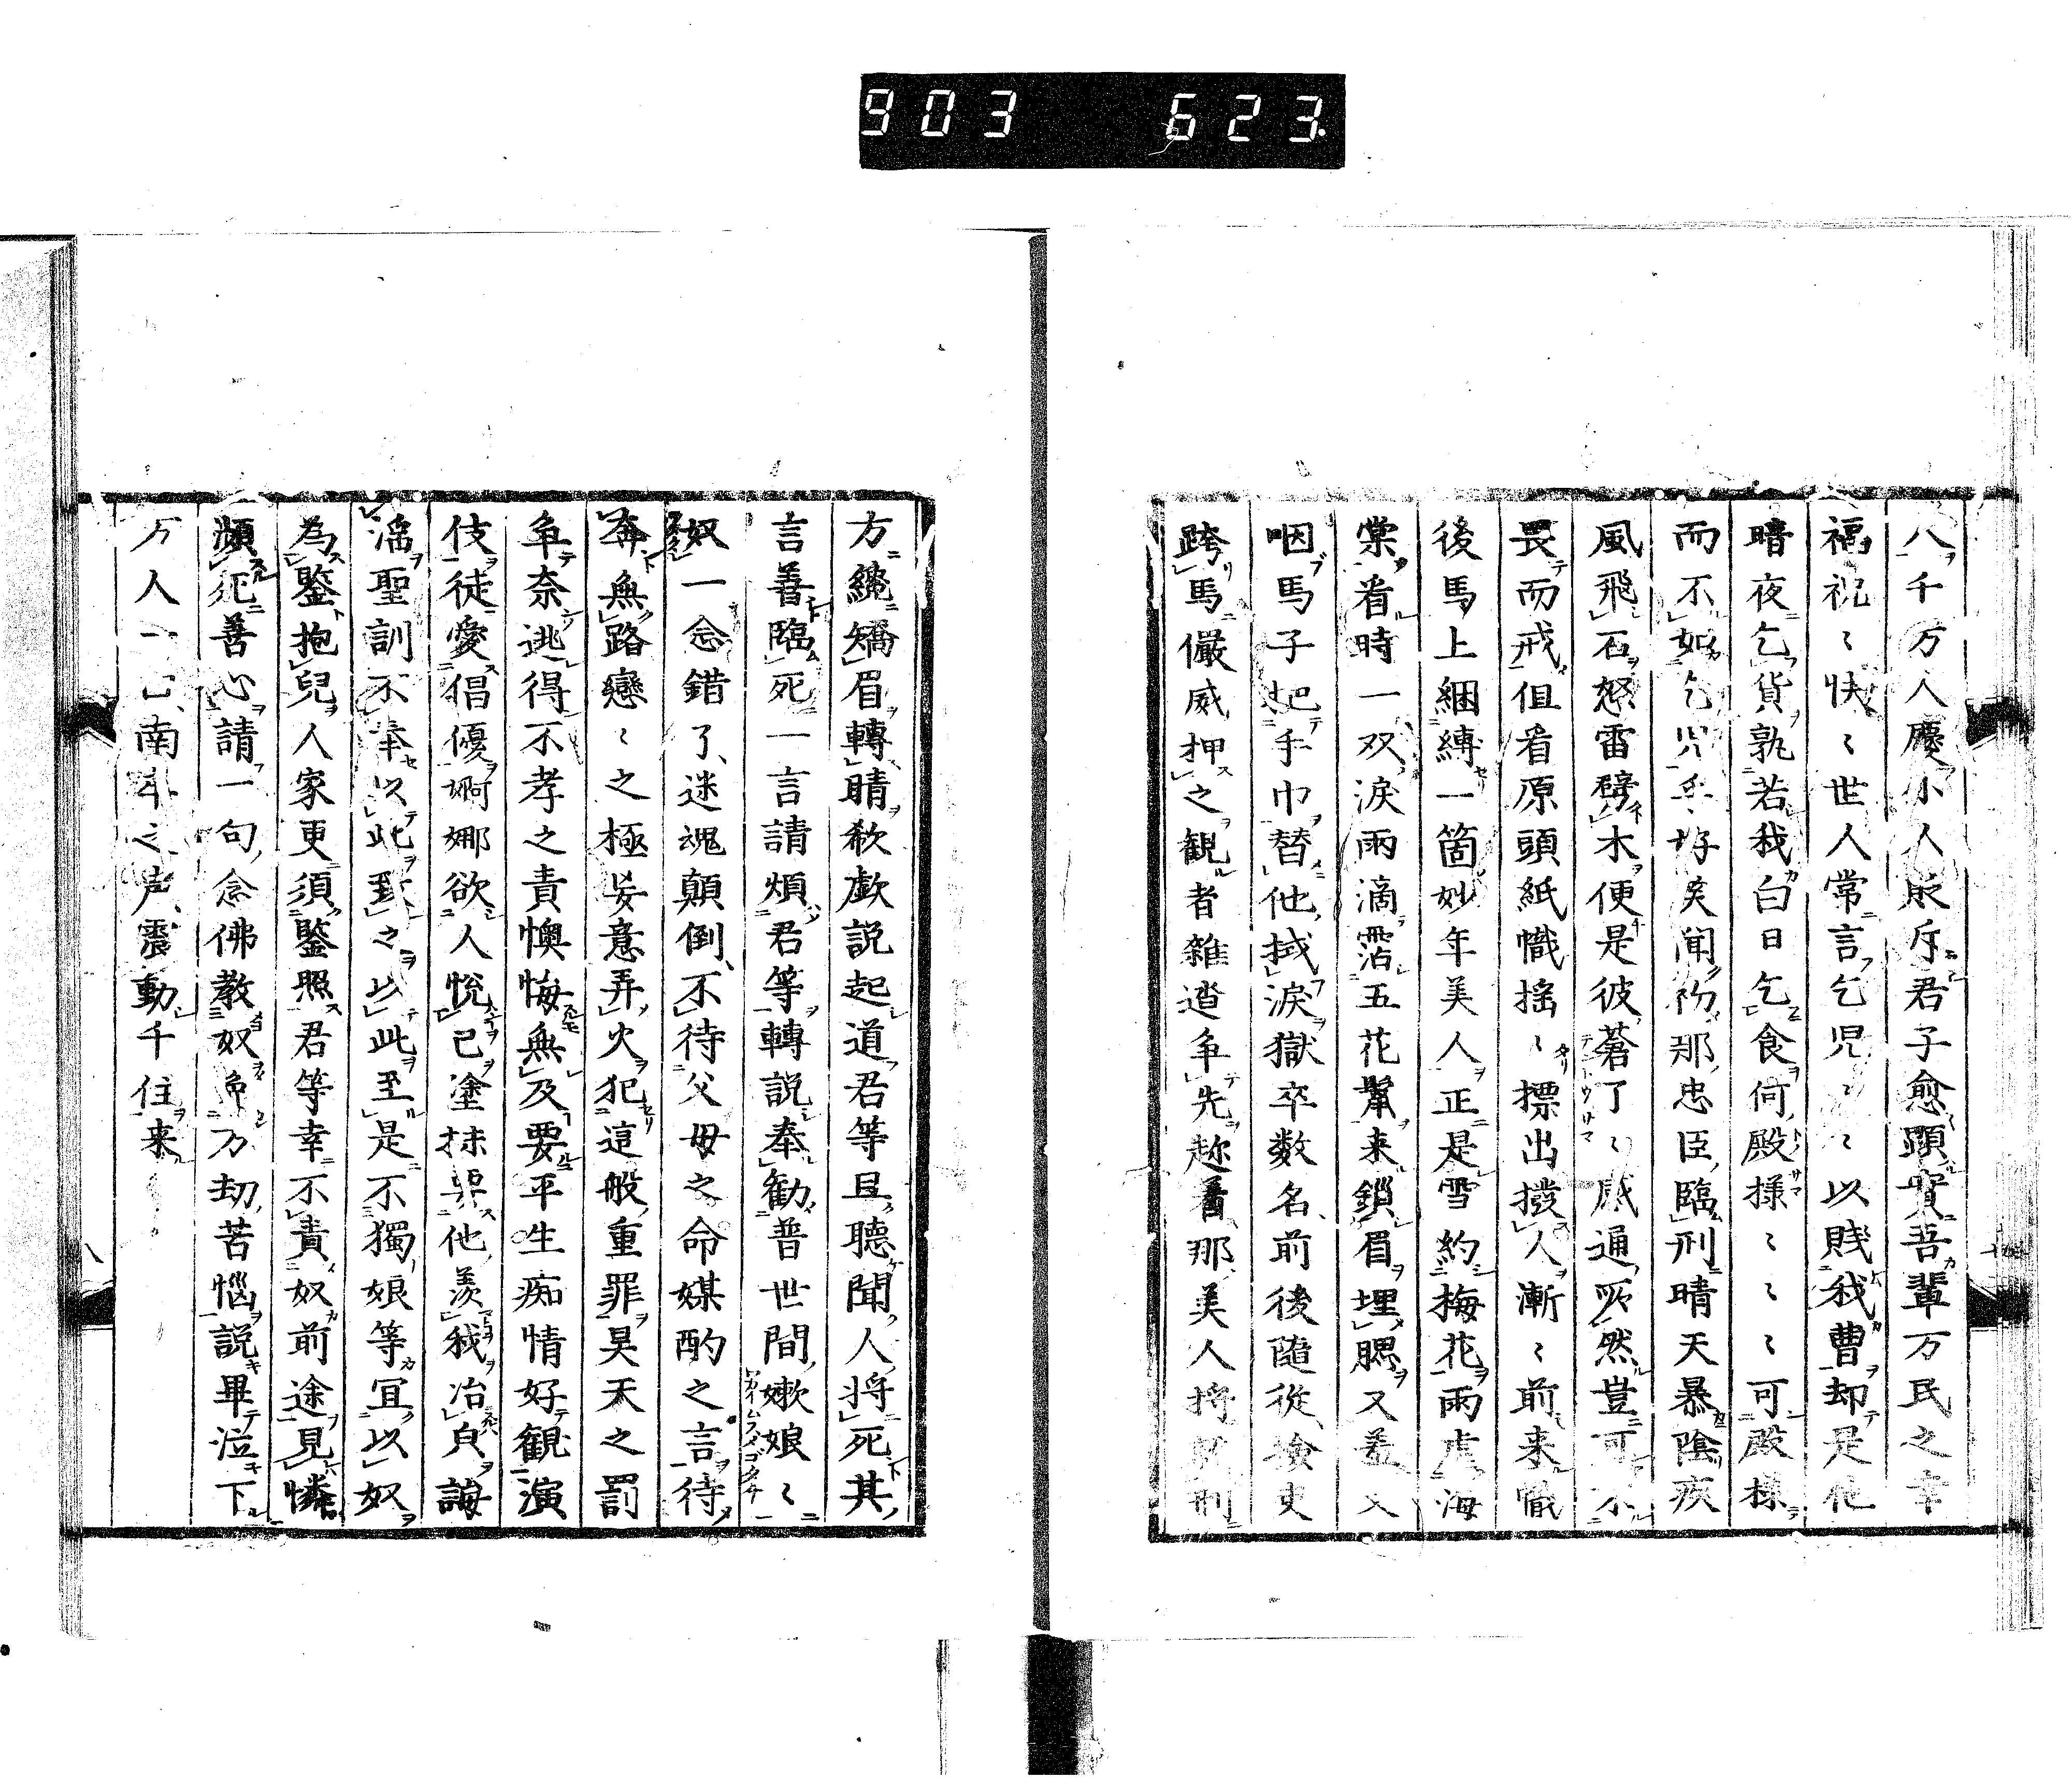 903 623
八千万人慶小人貶斥君子愈顕実吾輩万民之幸
福祝〻快〻世人常言乞児〻〻以賎我曹却是他
暗夜乞貨孰若我白日乞食何殿様〻〻〻可殿様
而不如乞児乎好矣聞初那忠臣臨刑晴天暴陰疾
風飛石怒雷劈木便是彼蒼了〻感通所然豈可不
畏而戒但看原頭紙幟揺〻摽出撥人漸〻前来幟
後馬上綑縛一箇妙年美人正是雪約梅花雨虐海
棠看時一双涙雨滴霑五花鬣来鎖眉埋腮又羞又
咽馬子把手巾替他拭涙獄卒数名前後随従検吏
跨馬儼威押之観者雑沓争先趂着那美人将就刑
方纔矯眉転睛欷歔説起道君等且聴聞人将死其
言善臨死一言請煩君等転説奉勧普世間嫩娘〻
奴一念錯了迷魂顛倒不待父母之命媒酌之言待
奔無路恋〻之極妄意弄火犯這般重罪昊天之罰
争奈逃得不孝之責懊悔無及要平生痴情好観演
伎徒愛猖優婀娜欲人悦己塗抹要他羨我冶貞誨
淫聖訓不奉以此致之以此至是不独娘等宜以奴
為鑒抱児人家更須鑒照君等幸不責奴前途見憐
頻死善心請一句念仏教奴免万劫苦悩説畢泣下
万人一口南無之声震動千住来
八